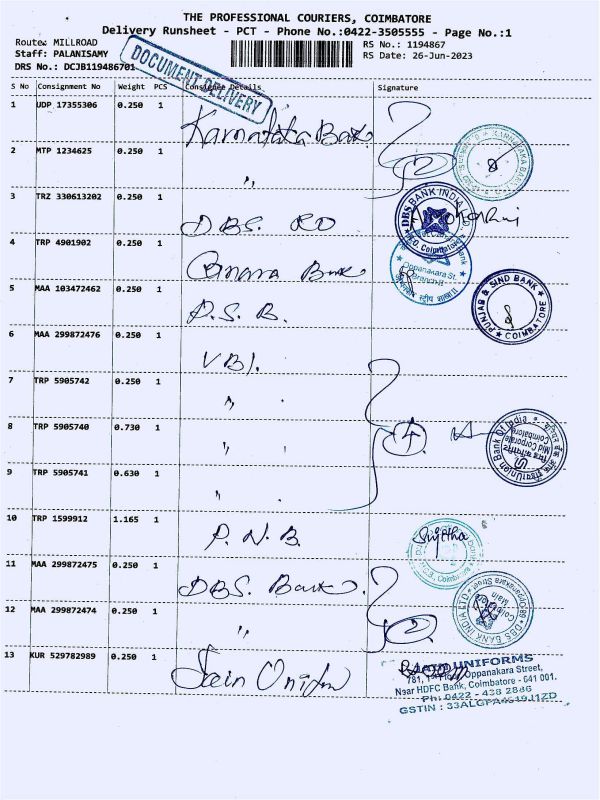 THE PROFESSIONAL COURIERS, COIMBATORE
Delivery Runsheet - PCT - Phone No.:0422-3505555 - Page No.:1
Route: MILLROAD
Staff: PALANISAMY
DRS No.: DCJB119486701
RS No.: 1194867
RS Date: 26-Jun-2023
DOCUMENT DELIVERY
S No Consignment No Weight PCS Consignee Details Signature
1 UDP 17355306 0.250 1 Karnataka Bank
2 MTP 1234625 0.250 1 "
2
KARNATAKA BANK
3 TRZ 330613202 0.250 1 DBS. RO
DBS BANK INDIA LTD.
R.O. Coimbatore
4 TRP 4901902 0.250 1 Canara Bank
Oppanakara St.
Branch-II
5 MAA 103472462 0.250 1 P.S.B.
PUNJAB & SIND BANK
COIMBATORE
6 MAA 299872476 0.250 1 VBI.
7 TRP 5905742 0.250 1 " "
8 TRP 5905740 0.730 1 " "
4
Union Bank Of India
Mid Corporate
Coimbatore
9 TRP 5905741 0.630 1 " "
10 TRP 1599912 1.165 1 P.N.B.
Sujitha
11 MAA 299872475 0.250 1 DBS Bank
12 MAA 299872474 0.250 1 "
2
DBS BANK INDIA LTD
Coimbatore
Main
13 KUR 529782989 0.250 1 Jain Uniform
JAIN UNIFORMS
781, 1st Floor, Oppanakara Street,
Near HDFC Bank, Coimbatore - 641 001.
Ph: 0422 - 438 2886